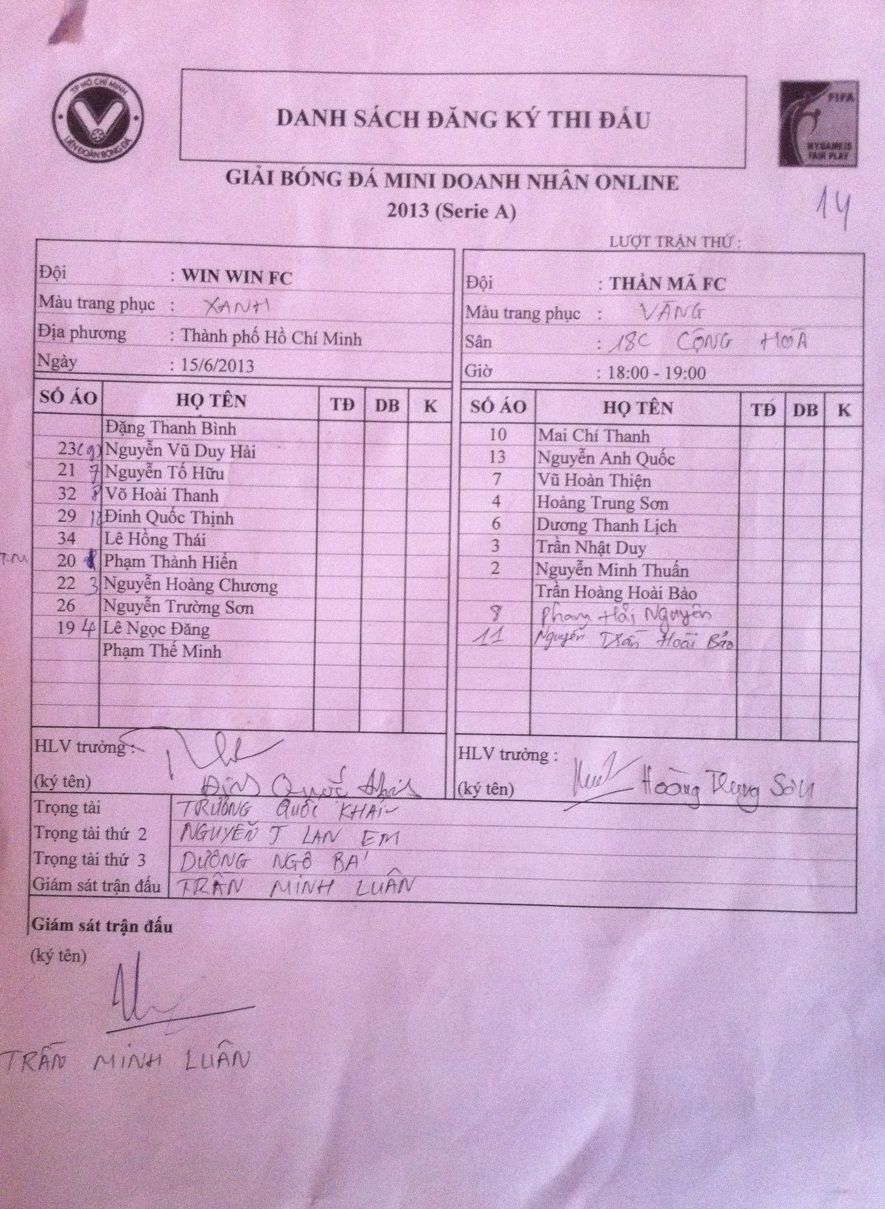 TP HỒ CHÍ MINH
LIÊN ĐOÀN BÓNG ĐÁ
DANH SÁCH ĐĂNG KÝ THI ĐẤU
FIFA
MY GAME IS
FAIR PLAY
GIẢI BÓNG ĐÁ MINI DOANH NHÂN ONLINE
2013 (Serie A)
14
LƯỢT TRẬN THỨ :
Đội : WIN WIN FC
Màu trang phục : XANH
Địa phương : Thành phố Hồ Chí Minh
Ngày : 15/6/2013
Đội : THẦN MÃ FC
Màu trang phục : VÀNG
Sân : 18C CỘNG HOÀ
Giờ : 18:00 - 19:00
SỐ ÁO HỌ TÊN TĐ DB K
Đặng Thanh Bình
23 (9) Nguyễn Vũ Duy Hải
21 7 Nguyễn Tố Hữu
32 8 Võ Hoài Thanh
29 Đinh Quốc Thịnh
34 Lê Hồng Thái
T.M 20 Phạm Thành Hiển
22 3 Nguyễn Hoàng Chương
26 Nguyễn Trường Sơn
19 4 Lê Ngọc Đăng
Phạm Thế Minh
SỐ ÁO HỌ TÊN TĐ DB K
10 Mai Chí Thanh
13 Nguyễn Anh Quốc
7 Vũ Hoàn Thiện
4 Hoàng Trung Sơn
6 Dương Thanh Lịch
3 Trần Nhật Duy
2 Nguyễn Minh Thuấn
Trần Hoàng Hoài Bảo
8 Phang Hải Nguyên
11 Nguyễn Trần Hoài Bảo
HLV trưởng :
(ký tên) Đinh Quốc Thịnh
HLV trưởng :
(ký tên) Hoàng Trung Sơn
Trọng tài TRƯƠNG QUỐC KHẢI
Trọng tài thứ 2 NGUYỄN T LAN EM
Trọng tài thứ 3 DƯƠNG NGÔ BÁ
Giám sát trận đấu TRẦN MINH LUÂN
Giám sát trận đấu
(ký tên)
TRẦN MINH LUÂN